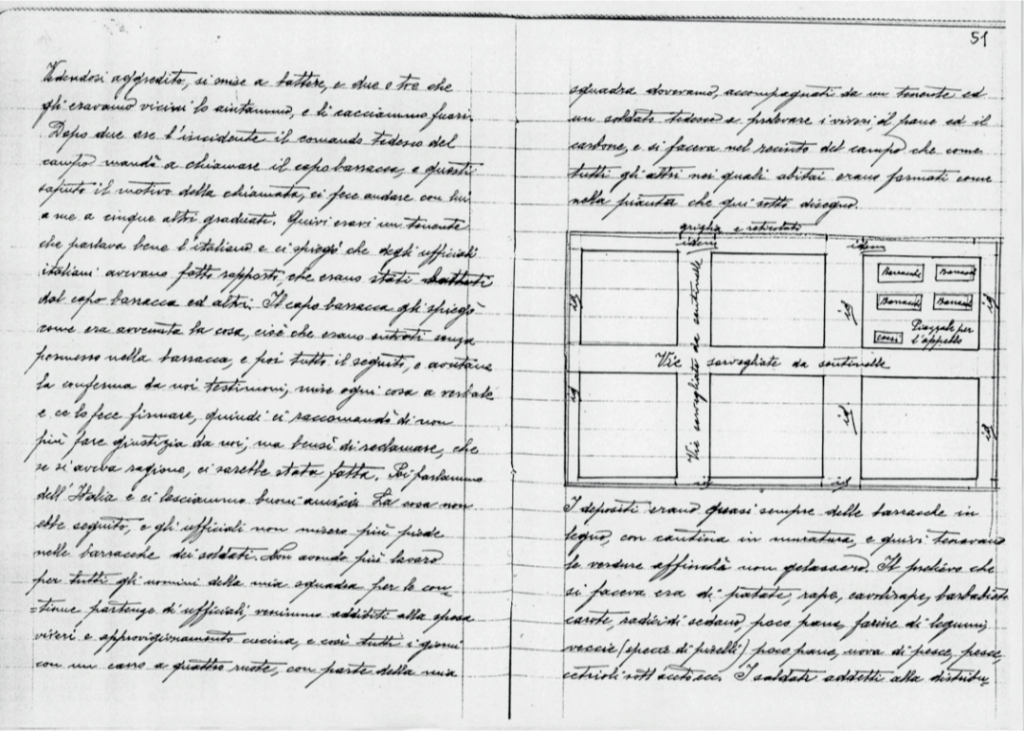 Vedendosi aggredito, si mise a battere, e due o tre che
gli eravamo vicini lo aiutammo, e li cacciammo fuori.
Dopo due ore l'incidente il comando tedesco del
campo mandò a chiamare il capo baracca, e questi
saputo il motivo della chiamata, ci fece andare con lui
a me a cinque altri graduati. Quivi eravi un tenente
che parlava bene l'italiano e ci spiegò che degli ufficiali
italiani avevano fatto rapporto, che erano stati battuti
dal capo baracca ed altri. Il capo baracca gli spiegò
come era avvenuta la cosa, cioè che erano entrati senza
permesso nella baracca, e poi tutto il seguito, e avutane
la conferma da noi testimoni, mise ogni cosa a verbale
e ce lo fece firmare, quindi ci raccomandò di non
più fare giustizia da noi, ma bensì di reclamare, che
se si aveva ragione, ci sarebbe stata fatta. Poi parlammo
dell'Italia e ci lasciammo buoni amici. La cosa non
ebbe seguito, e gli ufficiali non misero più piede
nelle baracche dei soldati. Non avendo più lavoro
per tutti gli uomini della mia squadra per le con-
=tinue partenze di ufficiali, venimmo additti alla spesa
viveri e approvigionamento cucina, e così tutti i giorni
con un carro a quattro ruote, con parte della mia
51
squadra dovevamo, accompagnati da un tenente ed
un soldato tedesco a prelevare i viveri, il pane ed il
carbone, e si faceva nel recinto del campo che come
tutti gli altri nei quali abitai erano formati come
nella pianta che qui sotto disegno.
griglia e reticolati
idem
idem
Baracche
Baracch
Baracch
Baracch
Piazzale per
l'appello
id
id
id
Vie sorvegliate da sentinelle
Vie sorvegliate da sentinelle
id
id
id
id
id
I depositi erano quasi sempre delle baracche in
legno, con cantina in muratura, e quivi tenevano
le verdure affinchè non gelassero. Il prelievo che
si faceva era di patate, rape, cavolirape, barbabietole
carote, radici di sedano, poco pane, farine di legumi,
veccie (specie di piselli) poco pane, uova di pesce, pesce,
cetrioli sott'aceto ecc. I soldati addetti alla distribu-